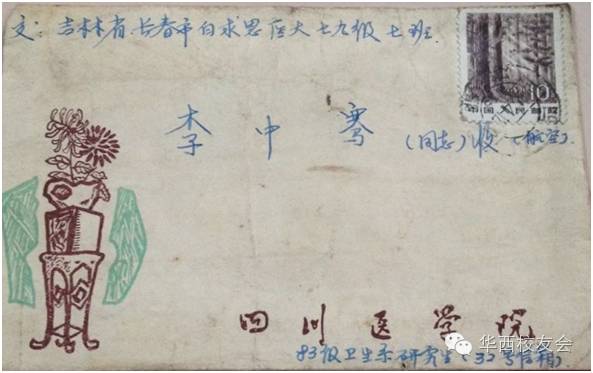 交：吉林省长春市白求恩医大七九级七班
10
中国人民邮政
李中骞
(同志)收(航空)
四川医学院
83级卫生系研究生(32号信箱)
华西校友会